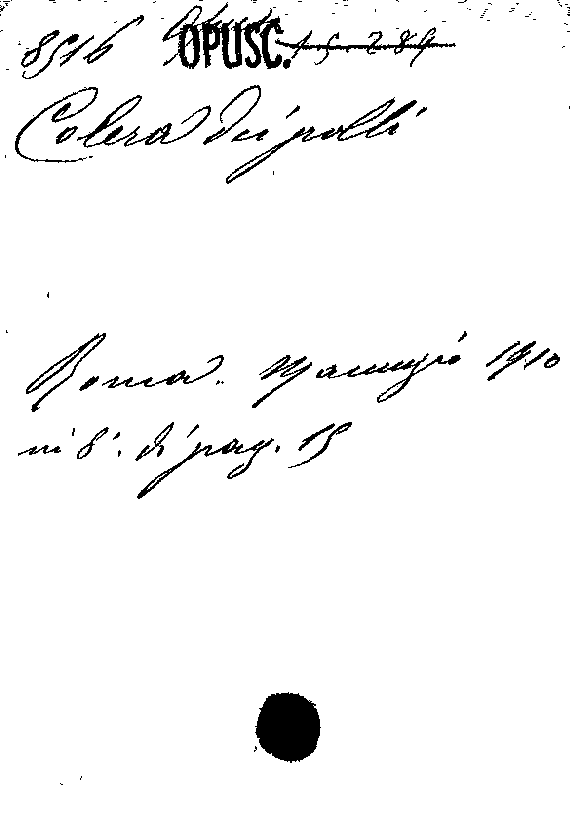 8516 OPUSC. 15.289
Colera dei polli
Roma. 1910
in 8°. di pag. 15